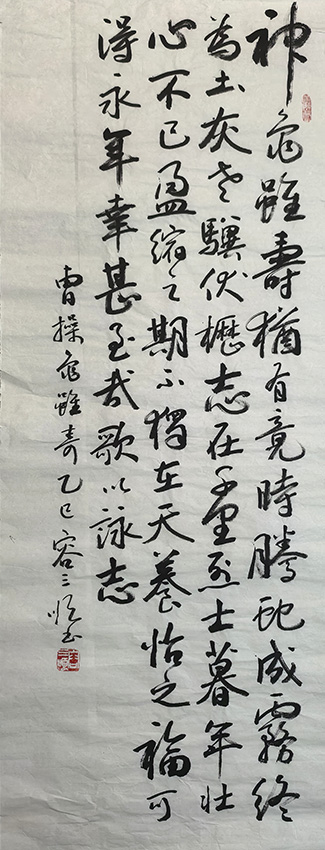 神龜雖壽猶有竟時騰虵成霧終
為土灰老驥伏櫪志在千里烈士暮年壯
心不已盈縮之期不獨在天養怡之福可
得永年幸甚至哉歌以詠志
曹操龜雖寿乙巳容三